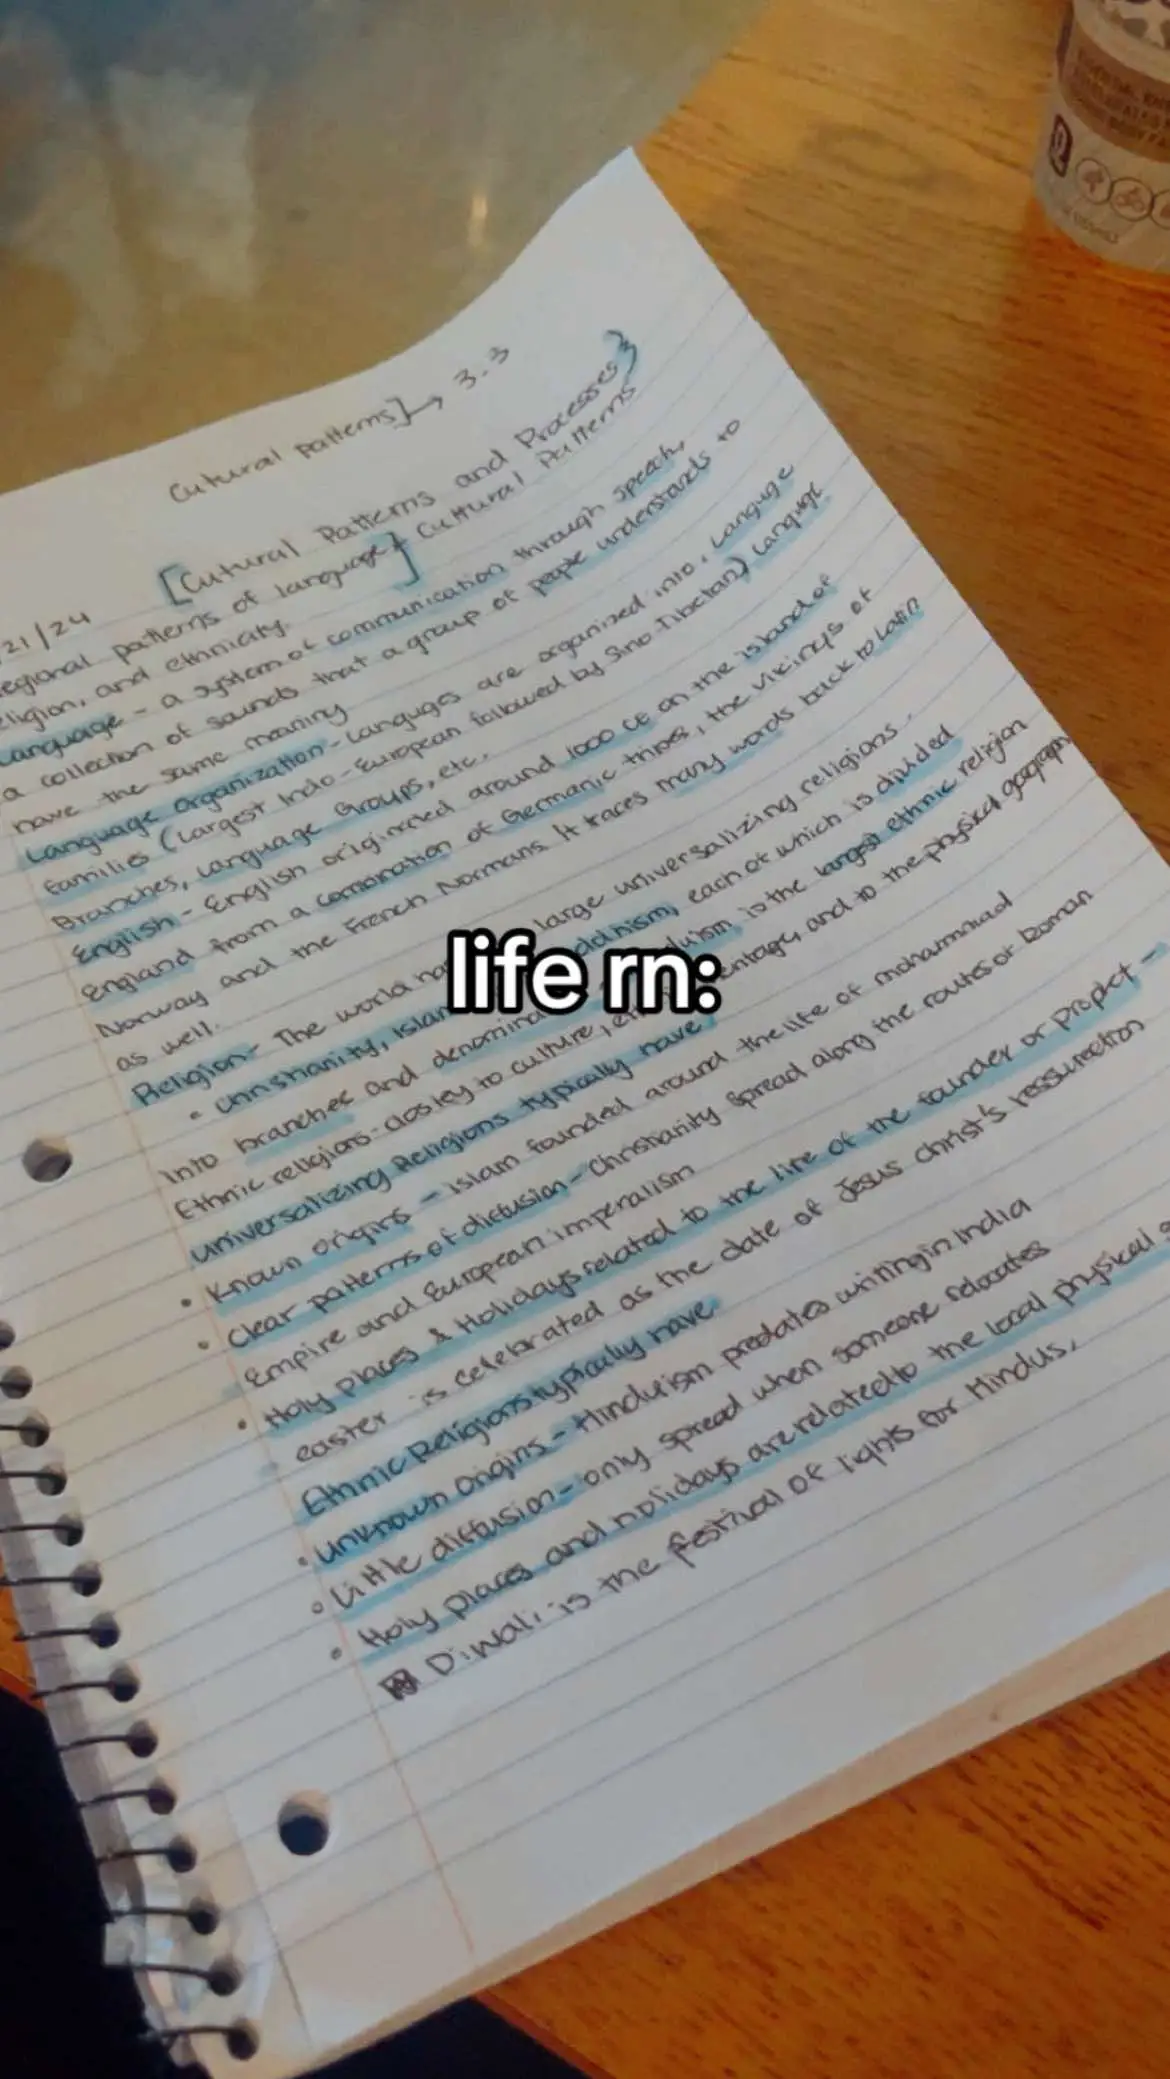 Cutural patterns] → 3.3
[Cutural Patterns and Processes}
21/24
regional patterns of language] Cultural Patterns
religion, and ethnicity.
Language - a system of communication through speech,
a collection of sounds that a group of people understands to
have the same meaning
Language Organization - Languges are organized into, Languge
families (Largest Indo-European followed by Sino-Tibetan) Languge
Branches, Language Groups, etc.
English - English originated around 1000 CE on the island of
England from a of Germanic tribes, the Vikings of
Norway and the French Normans. It traces many words back to Latin
as well.
Religion - The world large universalizing religions.
• Christianity, Islam each of which is divided
into branches and is the largest ethnic religion
Ethnic religions - to culture, and to the physical
Universalizing Religions typically have
• Known origins - Islam founded around the life of mohammad
• Clear patterns of diffusion - Christianity spread along the routes of Roman
Empire and European imperalism
• Holy places & Holidays related to the life of the founder or -
easter is celebrated as the date of Jesus christ's
Ethnic Religions typically have
• Unknown origins - Hinduism predates writing in India
• Little diffusion - only spread when someone relocates
• Holy places and holidays are related to the local physical
Diwali is the festival of lights for Hindus,
life rn: